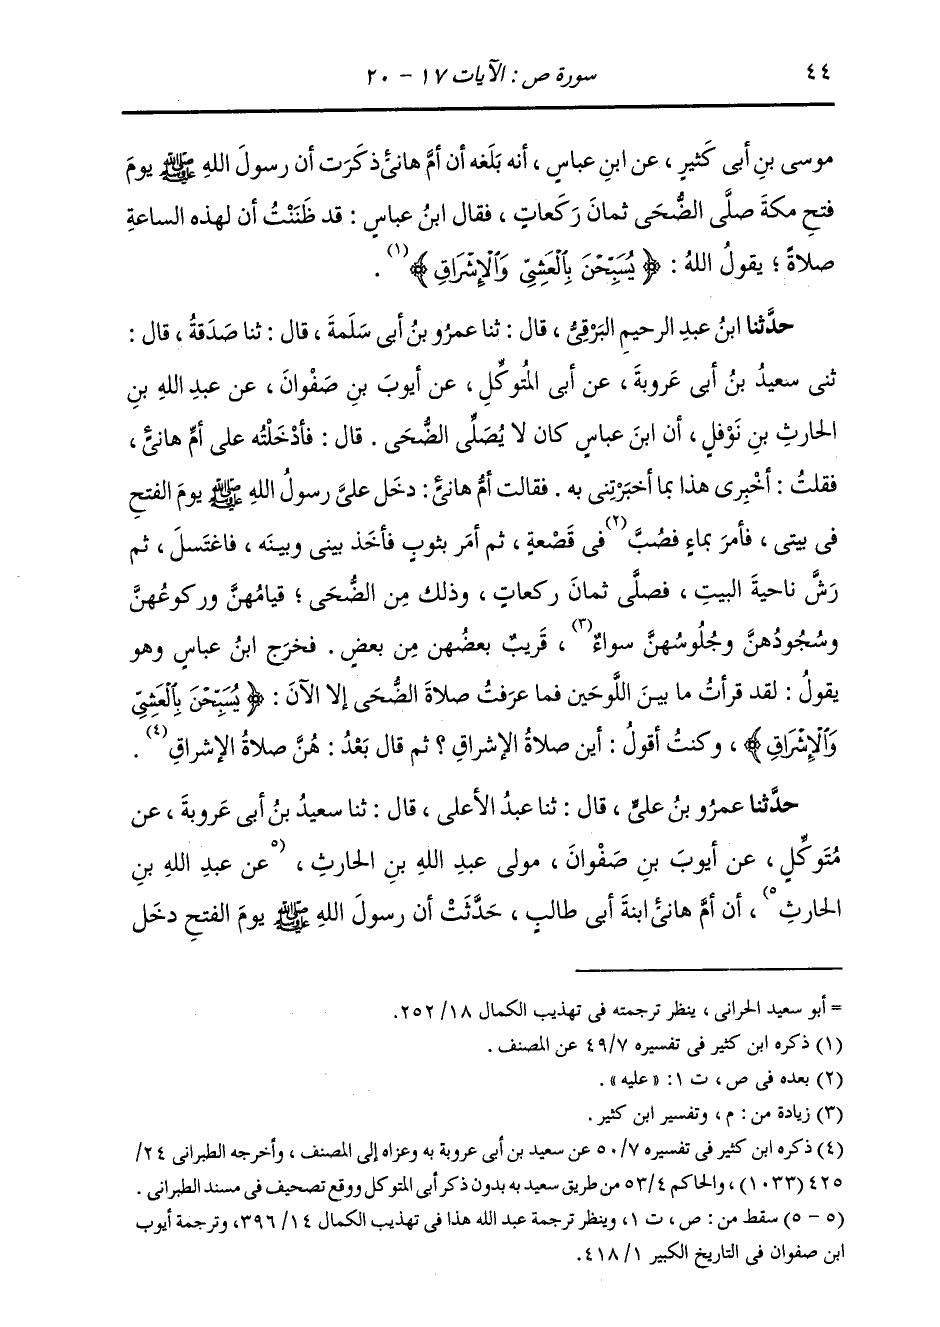 ٤٤ سورة ص : الآيات ١٧ - ٢٠
موسى بنِ أبى كَثيرٍ ، عن ابنِ عباسٍ ، أنه بَلَغه أن أمَّ هانئٍ ذكَرَت أن رسولَ اللهِ ﷺ يومَ
فتحِ مكةَ صلَّى الضُّحَى ثمانَ رَكَعاتٍ ، فقال ابنُ عباسٍ : قد ظَنَنْتُ أن لهذه الساعةِ
صلاةً ؛ يقولُ اللهُ : ﴿ يُسَبِّحْنَ بِالْعَشِيِّ وَالْإِشْرَاقِ ﴾(١) .
حدَّثنا ابنُ عبدِ الرحيمِ البَرْقِىُّ ، قال : ثنا عمرُو بنُ أبى سَلَمةَ ، قال : ثنا صَدَقةُ ، قال :
ثنى سعيدُ بنُ أبى عَروبةَ ، عن أبى المُتوكِّلِ ، عن أيوبَ بنِ صَفْوانَ ، عن عبدِ اللهِ بنِ
الحارثِ بنِ نَوْفلٍ ، أن ابنَ عباسٍ كان لا يُصَلِّى الضُّحَى . قال : فأدْخَلْتُه على أمِّ هانئٍ ،
فقلتُ : أخْبِرى هذا بما أخبَرْتِنى به . فقالت أمُّ هانئٍ : دخَل علىَّ رسولُ اللهِ ﷺ يومَ الفتحِ
فى بيتى ، فأمرَ بماءٍ فصُبَّ(٢) فى قَصْعةٍ ، ثم أمَر بثوبٍ فأخَذ بينى وبينَه ، فاغتَسلَ ، ثم
رَشَّ ناحيةَ البيتِ ، فصلَّى ثمانَ ركعاتٍ ، وذلك مِن الضُّحَى ؛ قيامُهنَّ وركوعُهنَّ
وسُجُودُهنَّ وجُلُوسُهنَّ سواءٌ(٣) ، قَريبٌ بعضُهن مِن بعضٍ . فخرَج ابنُ عباسٍ وهو
يقولُ : لقد قرأتُ ما بينَ اللَّوحَين فما عرَفتُ صلاةَ الضُّحَى إلا الآنَ : ﴿ يُسَبِّحْنَ بِالْعَشِيِّ
وَالْإِشْرَاقِ ﴾ ، وكنتُ أقولُ : أين صلاةُ الإشراقِ ؟ ثم قال بَعْدُ : هُنَّ صلاةُ الإشراقِ(٤) .
حدَّثنا عمرُو بنُ علىٍّ ، قال : ثنا عبدُ الأعلى ، قال : ثنا سعيدُ بنُ أبى عَروبةَ ، عن
مُتَوكِّلٍ ، عن أيوبَ بنِ صَفْوانَ ، مولى عبدِ اللهِ بنِ الحارثِ ، (٥عن عبدِ اللهِ بنِ
الحارثِ٥) ، أن أمَّ هانئٍ ابنةَ أبى طالبٍ ، حَدَّثَتْ أن رسولَ اللهِ ﷺ يومَ الفتحِ دخَل
= أبو سعيد الحرانى ، ينظر ترجمته فى تهذيب الكمال ١٨/ ٢٥٢.
(١) ذكره ابن كثير فى تفسيره ٤٩/٧ عن المصنف .
(٢) بعده فى ص ، ت ١: «عليه» .
(٣) زيادة من : م ، وتفسير ابن كثير .
(٤) ذكره ابن كثير فى تفسيره ٥٠/٧ عن سعيد بن أبى عروبة به وعزاه إلى المصنف ، وأخرجه الطبرانى ٢٤/
٤٢٥ (١٠٣٣) ، والحاكم ٥٣/٤ من طريق سعيد به بدون ذكر أبى المتوكل ووقع تصحيف فى مسند الطبرانى .
(٥ - ٥) سقط من : ص ، ت ١، وينظر ترجمة عبد الله هذا فى تهذيب الكمال ١٤/ ٣٩٦، وترجمة أيوب
ابن صفوان فى التاريخ الكبير ١/ ٤١٨.